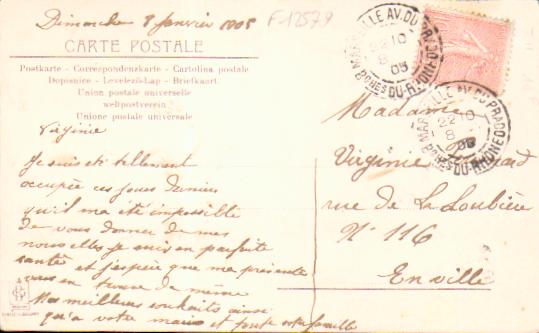 Dimanche 8 Janvier 1905
F-12579
CARTE POSTALE
Postkarte - Correspondenzkarte - Cartolina postale
Dopisnice - Levelező-Lap - Briefkaart.
Union postale universelle
weltpostverein
Unione postale universale
MARSEILLE AV. DU PRADO
22 10
8
05
BCHES DU-RHÔNE
MARSEILLE AV. DU PRADO
22 10
8
05
BCHES DU-RHÔNE
Virginie
Je suis été tellement
occupée ces jours derniers
qu'il m'a été impossible
de vous donner de mes
nouvelles je suis en parfaite
santé et j'espère que ma présente
vous en trouve de même
Mes meilleurs souhaits ainsi
qu'a votre maris et toute votre famille
Madame
Virginie
rue de La Loubière
N° 116
En ville